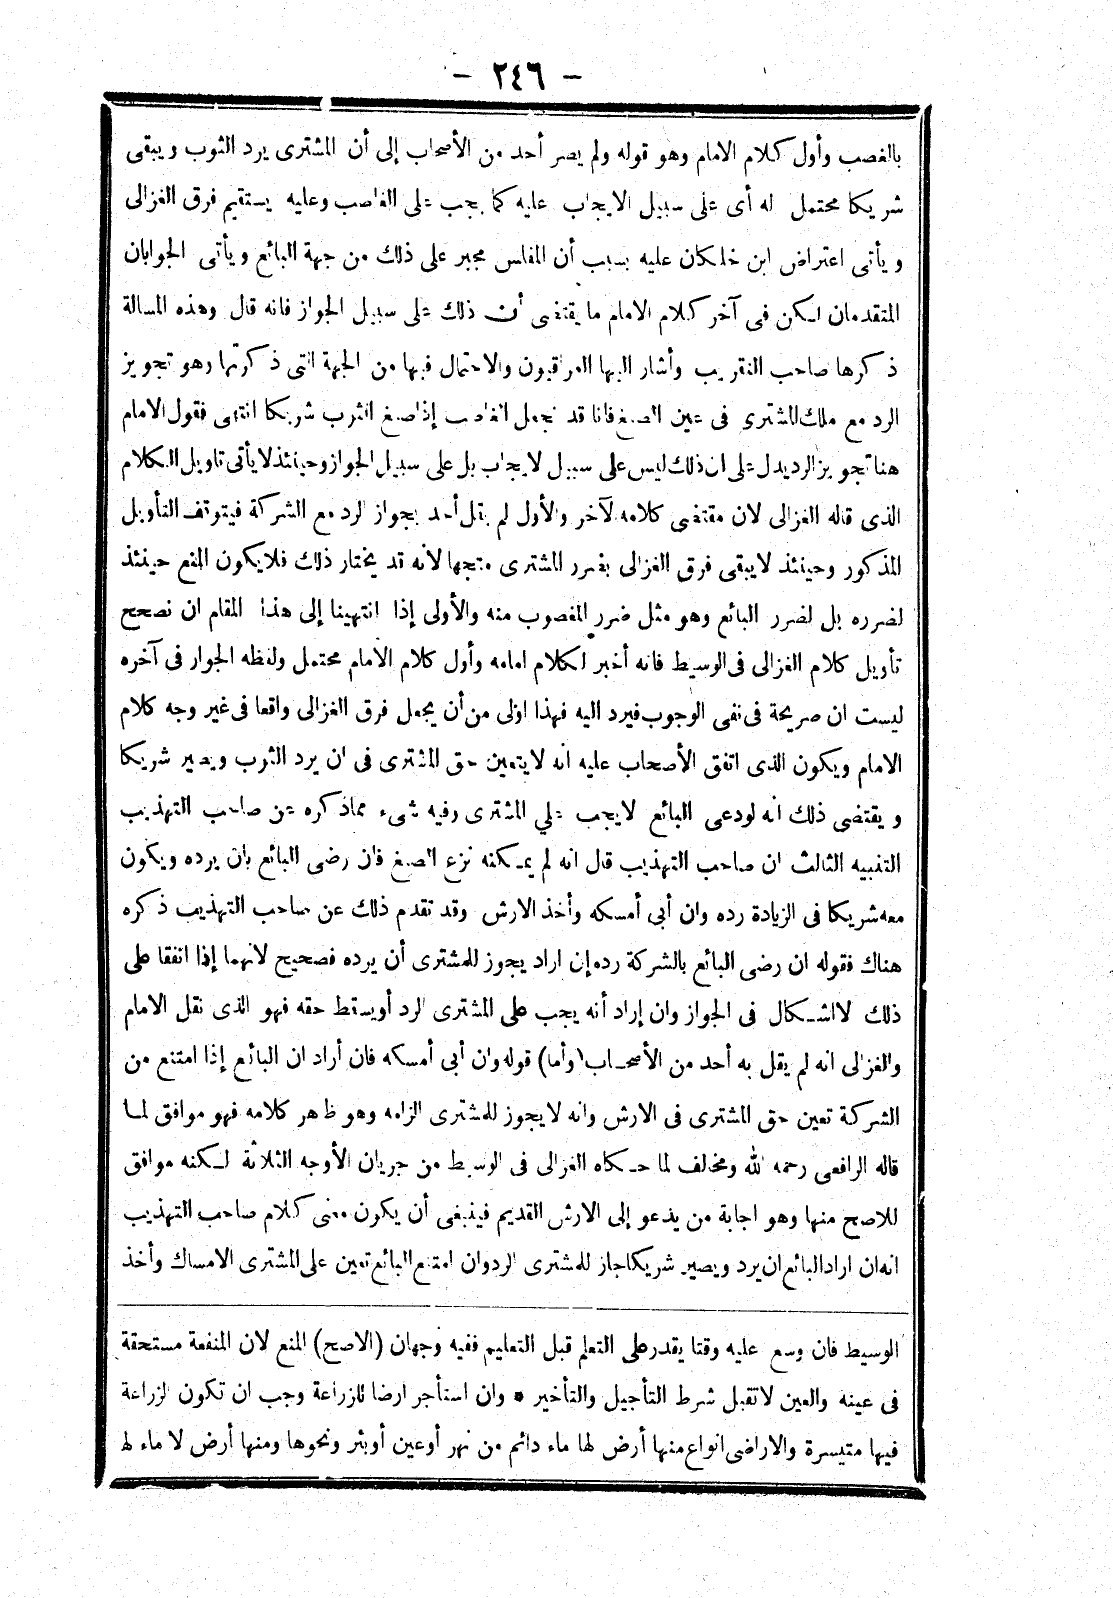 - ٢٤٦ -
بالغصب وأول كلام الامام وهو قوله ولم يصر أحد من الأصحاب إلى أن المشترى يرد الثوب ويبقى
شريكا محتمل له أى على سبيل الايجاب عليه كما يجب على الغاصب وعليه يستقيم فرق الغزالى
ويأتى اعتراض ابن خلكان عليه بسبب أن المفلس مجبر على ذلك من جهة البائع ويأتى الجوابان
المتقدمان لكن فى آخر كلام الامام ما يقتضى أن ذلك على سبيل الجواز فانه قال وهذه المسالة
ذكرها صاحب التقريب وأشار اليها العراقيون والاحتمال فيها من الجهة التى ذكرتها وهو تجويز
الرد مع ملك المشترى فى عين الصبغ فانا قد نجعل الغاصب إذا صبغ الثوب شريكا انتهى فقول الامام
هنا تجويز الرد يدل على ان ذلك ليس على سبيل لايجاب بل على سبيل الجواز وحينئذ لا يأتى تاويل الكلام
الذى قاله الغزالى لان مقتضى كلامه لآخر والأول لم يقل أحد بجواز الرد مع الشركة فيتوقف التأويل
المذكور وحينئذ لا يبقى فرق الغزالى بضرر المشترى متجها لأنه قد يختار ذلك فلا يكون المنع حينئذ
لضرره بل لضرر البائع وهو مثل ضرر المغصوب منه والأولى إذا انتهينا إلى هذا المقام ان نصحح
تأويل كلام الغزالى فى الوسيط فانه أخبر لكلام امامه وأول كلام الامام محتمل ولفظه الجوار فى آخره
ليست ان صريحة فى نفى الوجوب فيرد اليه فهذا اولى من أن يجعل فرق الغزالى واقعا فى غير وجه كلام
الامام ويكون الذى اتفق الأصحاب عليه انه لا يتعين حق المشترى فى ان يرد الثوب ويصير شريكا
ويقتضى ذلك انه لو دعى البائع لا يجب على المشترى وفيه شىء مما ذكره عن صاحب التهذيب
التنبيه الثالث ان صاحب التهذيب قال انه لم يمكنه نزع الصبغ فان رضى البائع بان يرده ويكون
معه شريكا فى الزيادة رده وان أبى أمسكه وأخذ الارش وقد تقدم ذلك عن صاحب التهذيب ذكره
هناك فقوله ان رضى البائع بالشركة رده إن اراد يجوز للمشترى أن يرده فصحيح لانهما إذا اتفقا على
ذلك لا اشكال فى الجواز وان إراد أنه يجب على المشترى الرد أو يسقط حقه فهو الذى نقل الامام
والغزالى انه لم يقل به أحد من الأصحاب (وأما) قوله وان أبى أمسكه فان أراد ان البائع إذا امتنع من
الشركة تعين حق المشترى فى الارش وانه لا يجوز للمشترى الزامه وهو ظاهر كلامه فهو موافق لما
قاله الرافعى رحمه الله ومخالف لما حكاه الغزالى فى الوسيط من جريان الأوجه الثلاثة لكنه موافق
للاصح منها وهو اجابة من يدعو إلى الارش القديم فينبغى أن يكون معنى كلام صاحب التهذيب
انه ان اراد البائع ان يرد ويصير شريكا جاز للمشترى الرد وان امتنع البائع تعين على المشترى الامساك وأخذ
الوسيط فان وسع عليه وقتا يقدر على التعلم قبل التعليم ففيه وجهان (الاصح) المنع لان المنفعة مستحقة
فى عينه والعين لا تقبل شرط التأجيل والتأخير * وان استأجر ارضا للزراعة وجب ان تكون الزراعة
فيها متيسرة والاراضى انواع منها أرض لها ماء دائم من نهر أو عين أو بئر ونحوها ومنها أرض لا ماء لها